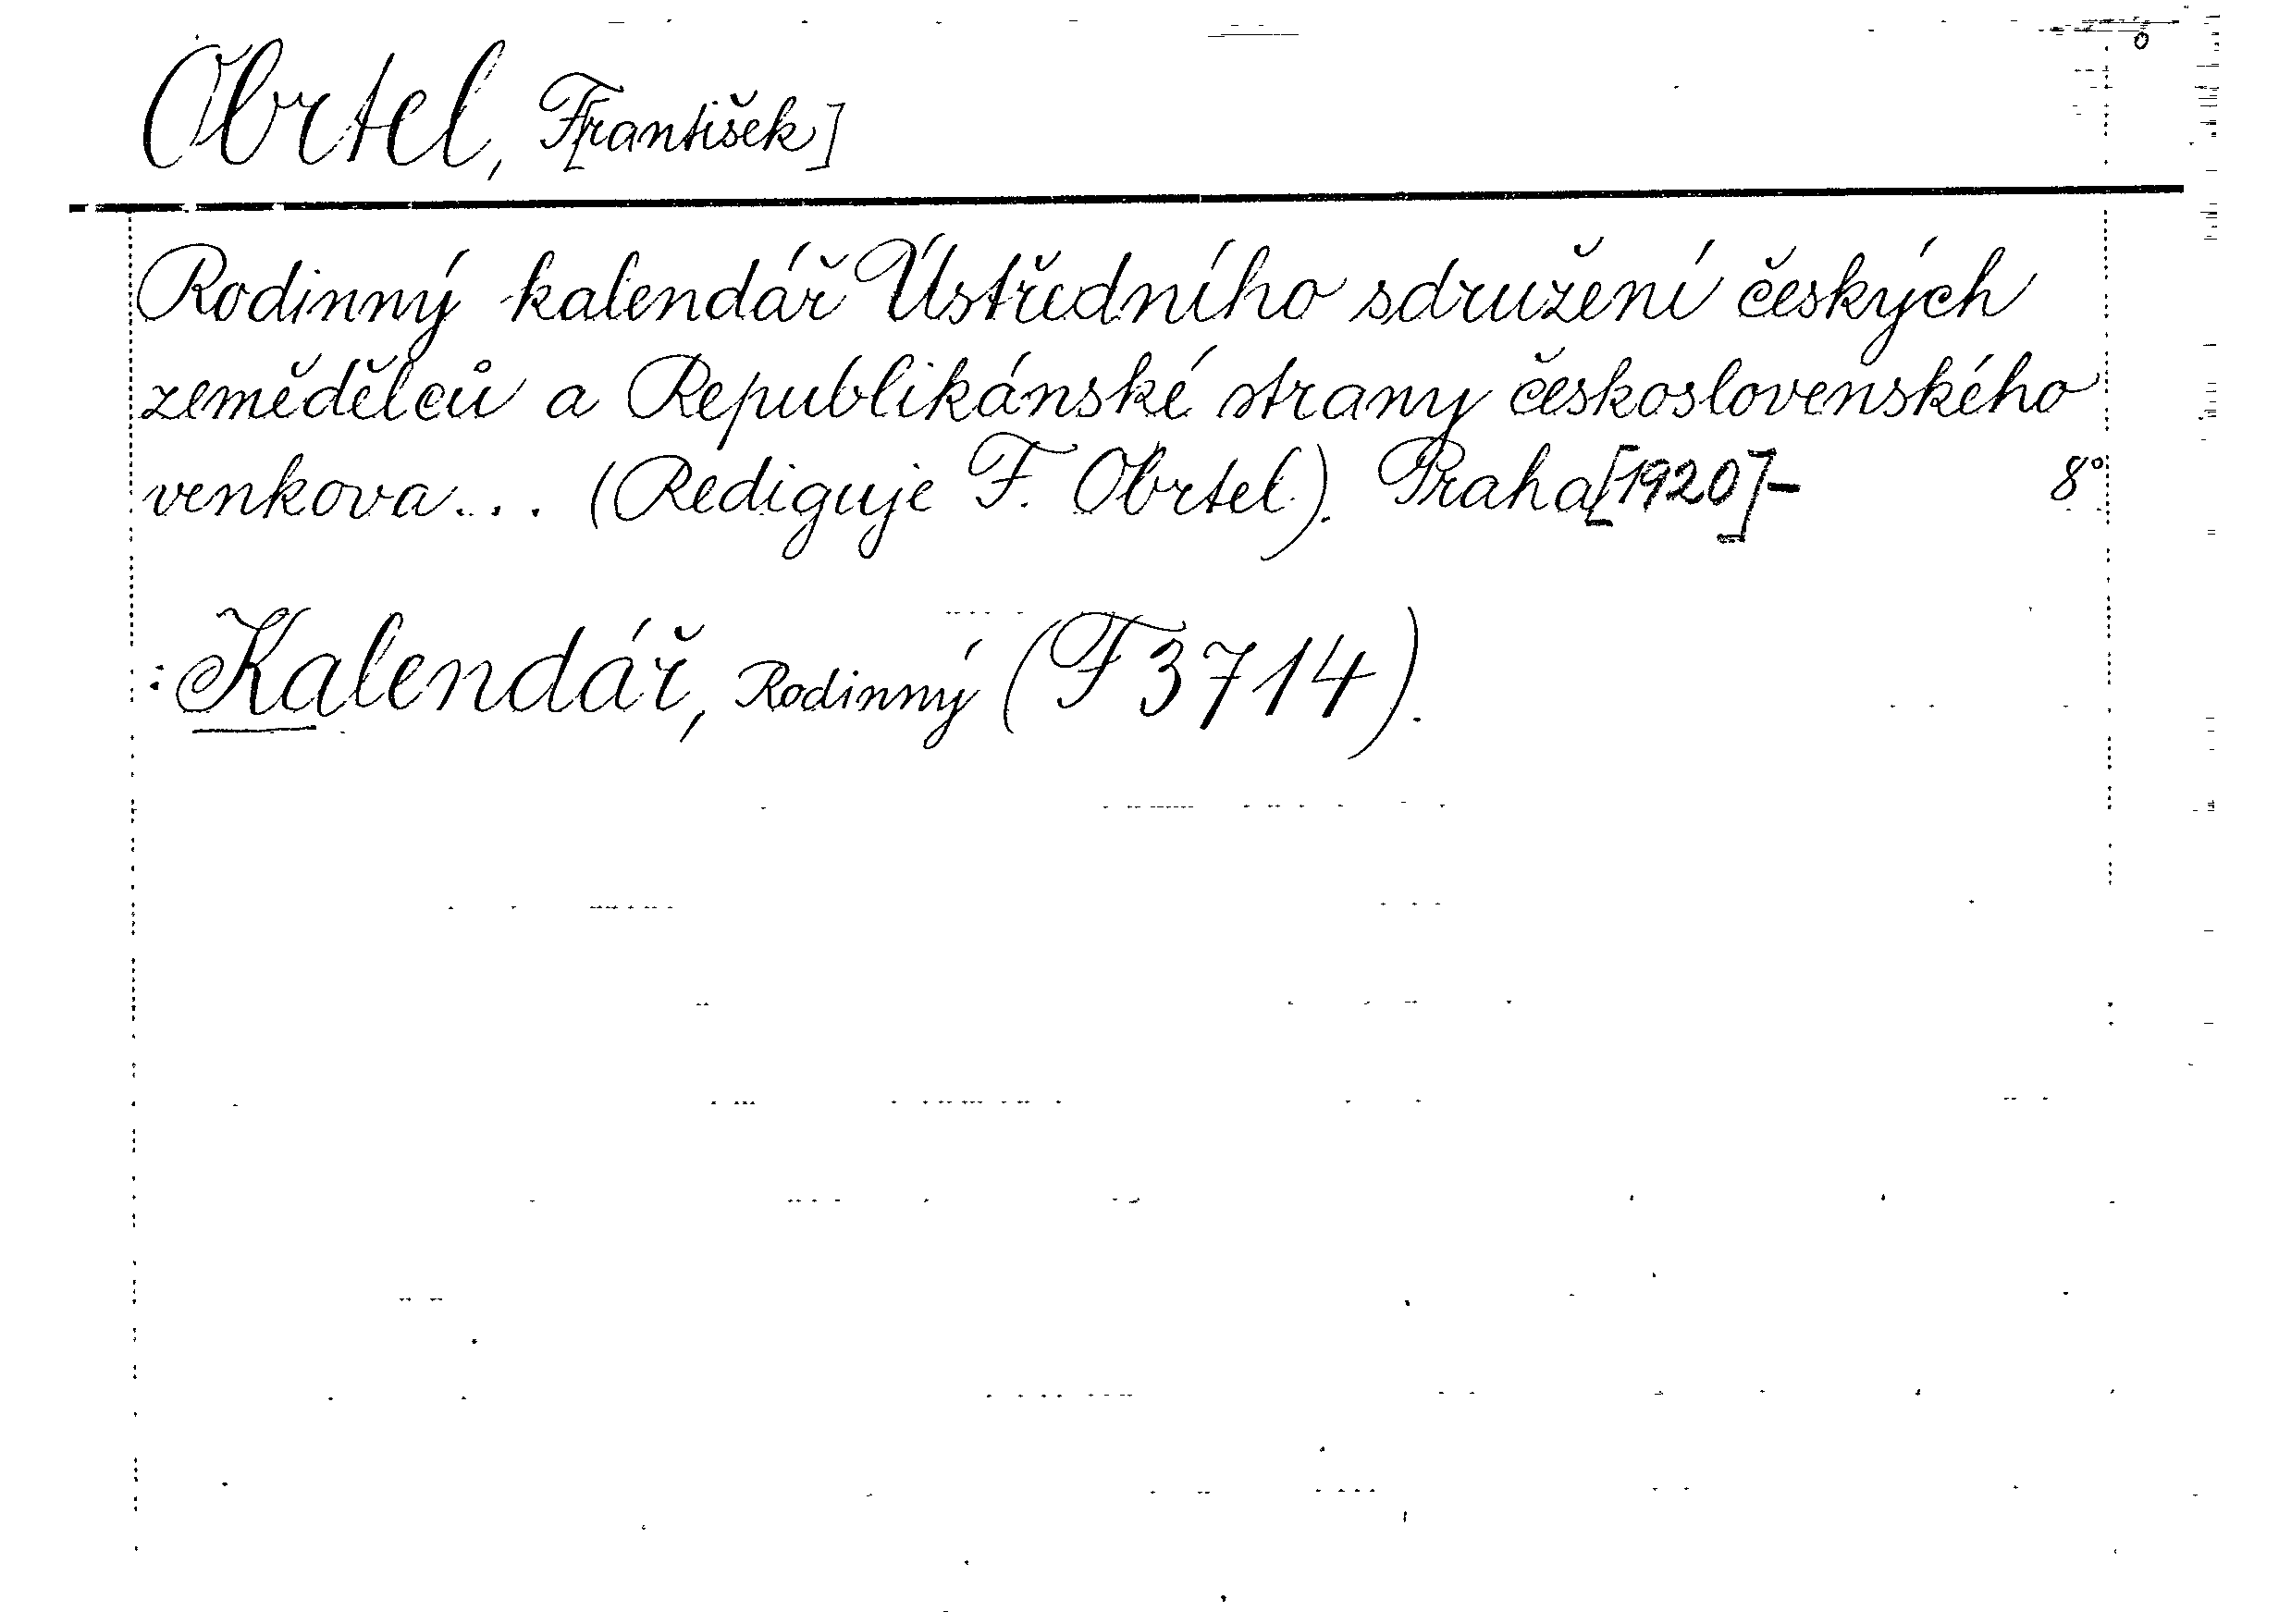 Obrtel, F[rantišek]
Rodinný kalendář Ústředního sdružení českých
zemědělců a Republikánské strany československého
venkova... (Rediguje F. Obrtel). Praha [1920]- 8°
: Kalendář, Rodinný (F 3714).